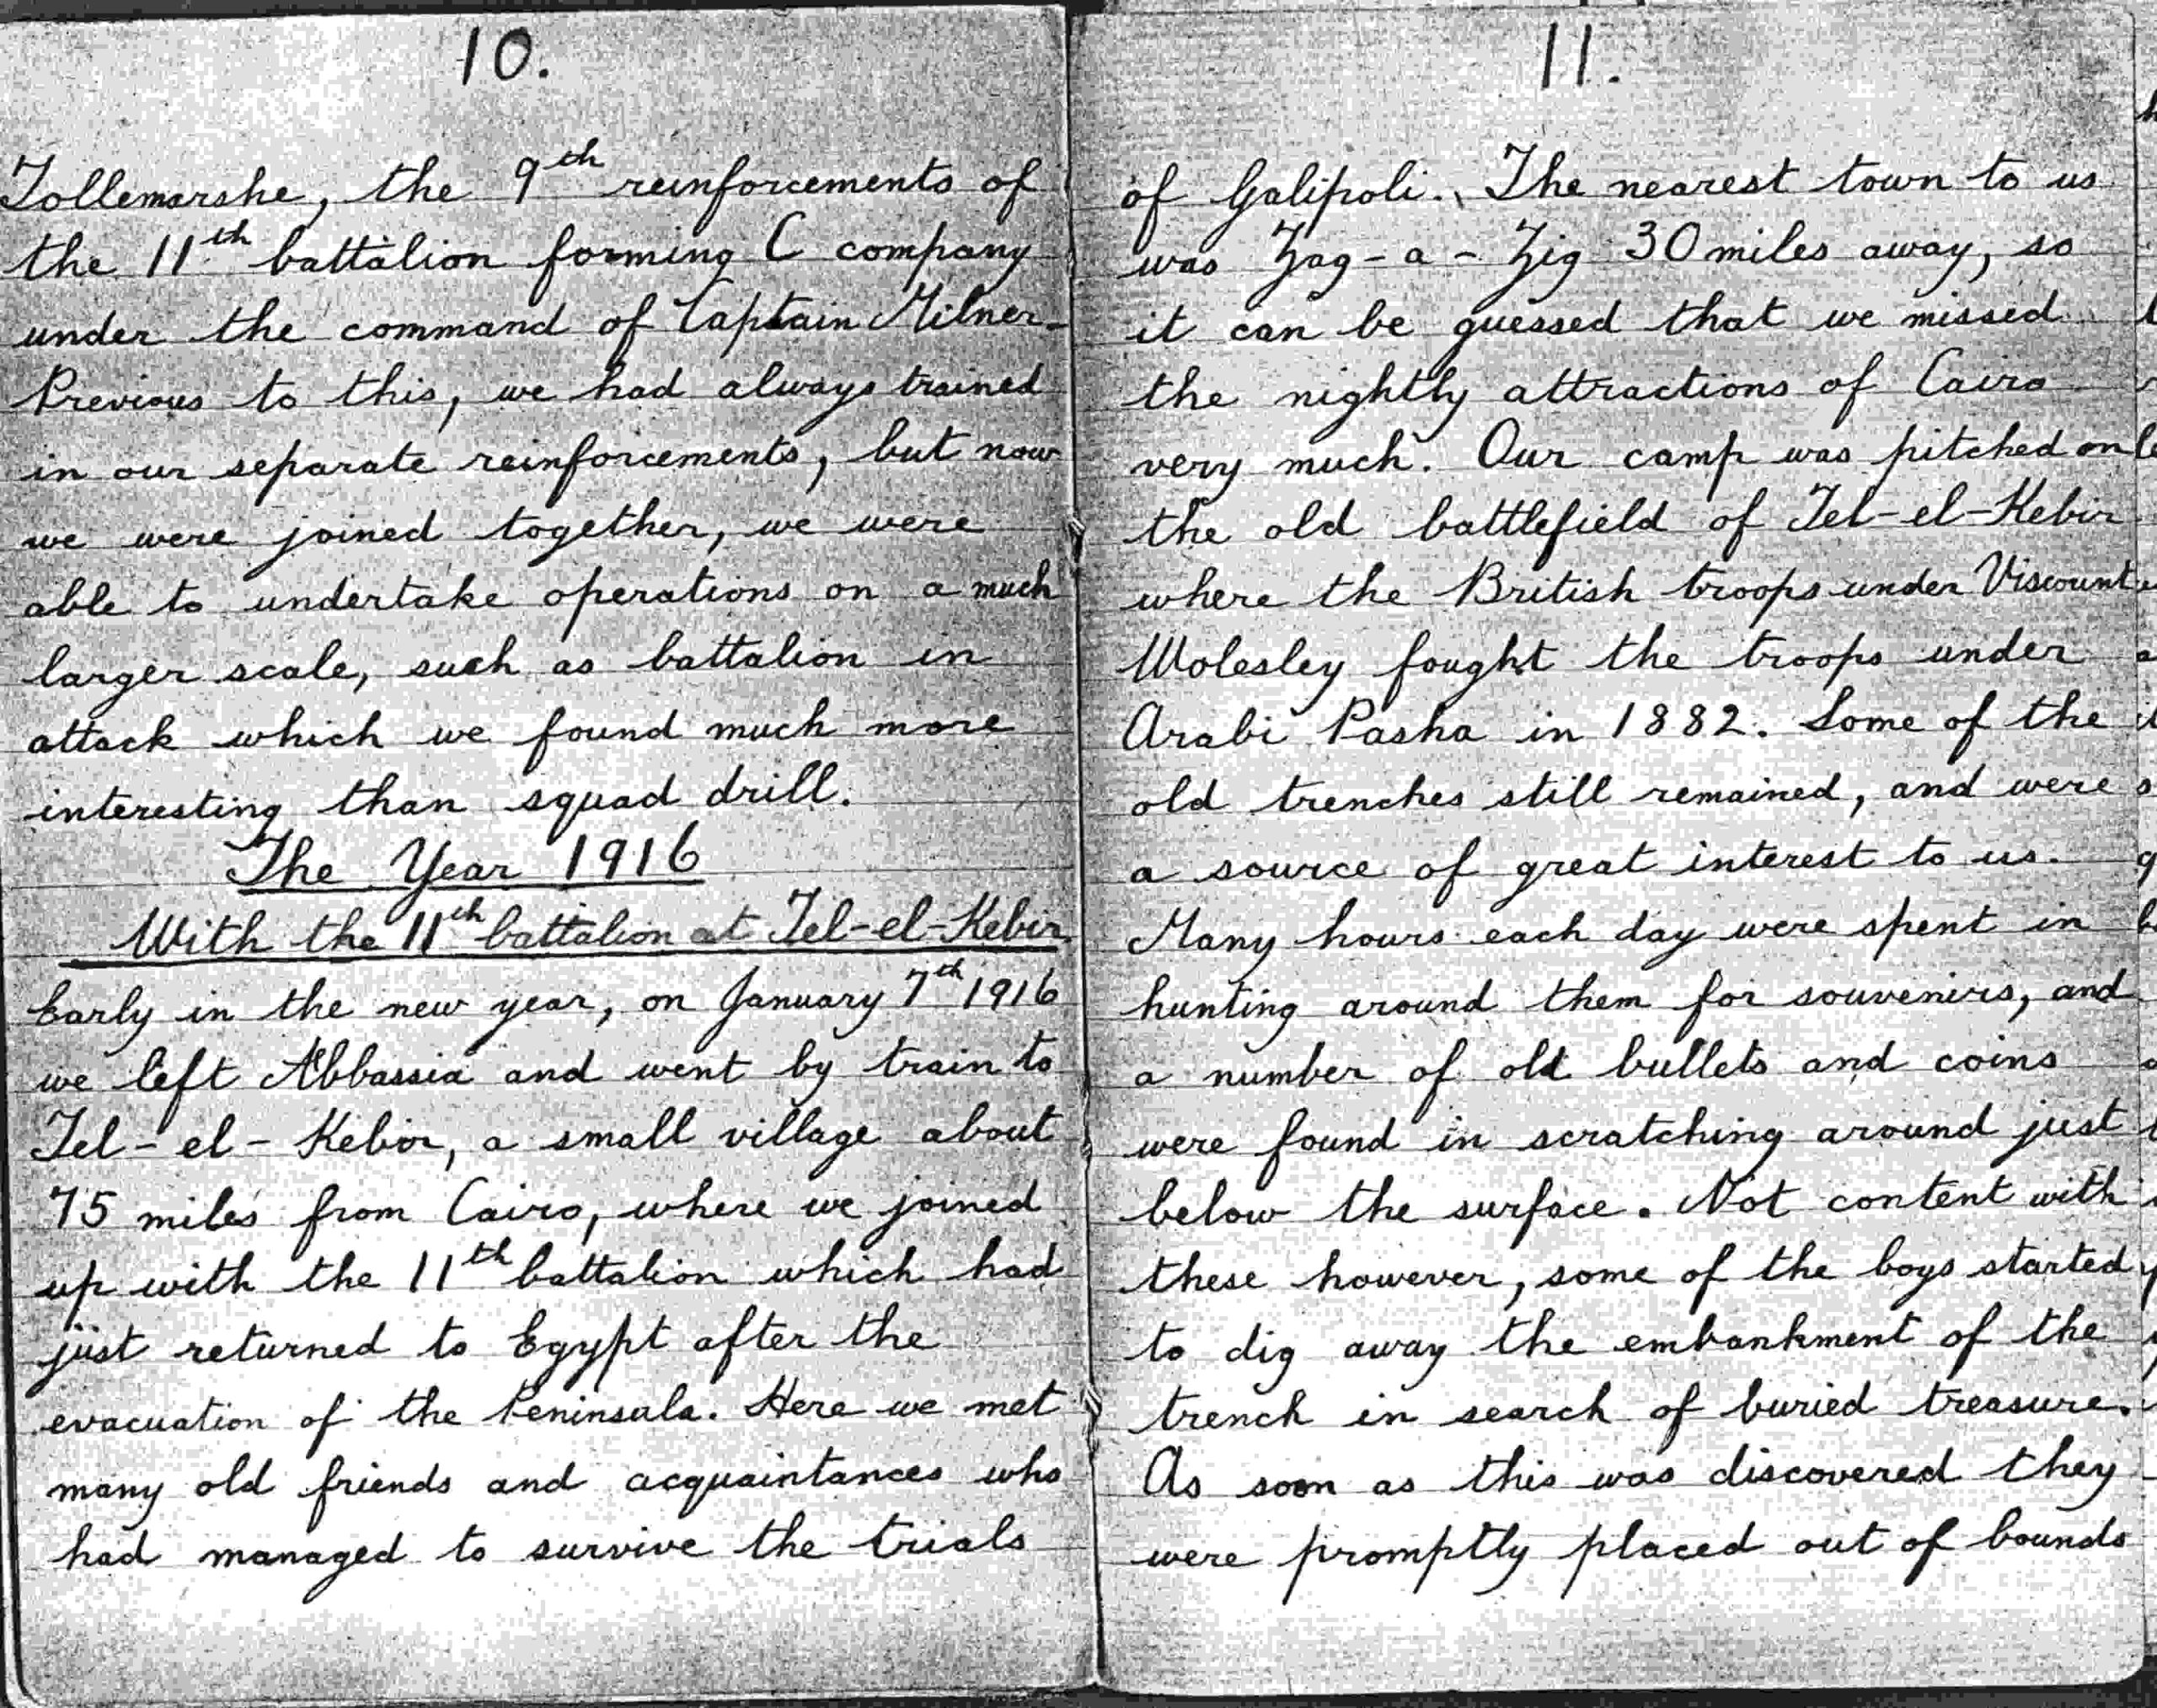 10.
Tollemarshe, the 9th reinforcements of
the 11th battalion forming C company
under the command of Captain Milner.
Previous to this, we had always trained
in our separate reinforcements, but now
we were joined together, we were
able to undertake operations on a much
larger scale, such as battalion in
attack which we found much more
interesting than squad drill.
The Year 1916
With the 11th battalion at Tel-el-Kebir
Early in the new year, on January 7th 1916
we left Abbassia and went by train to
Tel-el-Kebir, a small village about
75 miles from Cairo, where we joined
up with the 11th battalion which had
just returned to Egypt after the
evacuation of the Peninsula. Here we met
many old friends and acquaintances who
had managed to survive the trials
11.
of Galipoli. The nearest town to us
was Zag-a-Zig 30 miles away, so
it can be guessed that we missed
the nightly attractions of Cairo
very much. Our camp was pitched on
the old battlefield of Tel-el-Kebir
where the British troops under Viscount
Wolesley fought the troops under
Arabi Pasha in 1882. Some of the
old trenches still remained, and were
a source of great interest to us.
Many hours each day were spent in
hunting around them for souvenirs, and
a number of old bullets and coins
were found in scratching around just
below the surface. Not content with
these however, some of the boys started
to dig away the embankment of the
trench in search of buried treasure.
As soon as this was discovered they
were promptly placed out of bounds